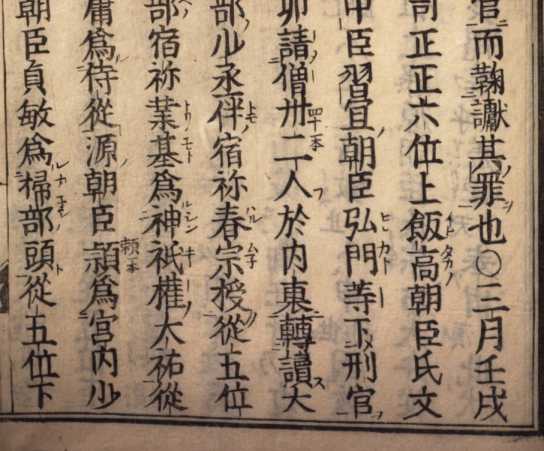 官而鞠讞其罪也○三月壬戌
司正正六位上飯高朝臣氏文
中臣習宜朝臣弘門等下刑官
卯請僧卅二人於内裏轉讀大
部少丞伴宿祢春宗授從五位
部宿祢業基爲神祇權大祐從
庸爲侍從源朝臣頴爲宮内少
朝臣貞敏爲掃部頭從五位下